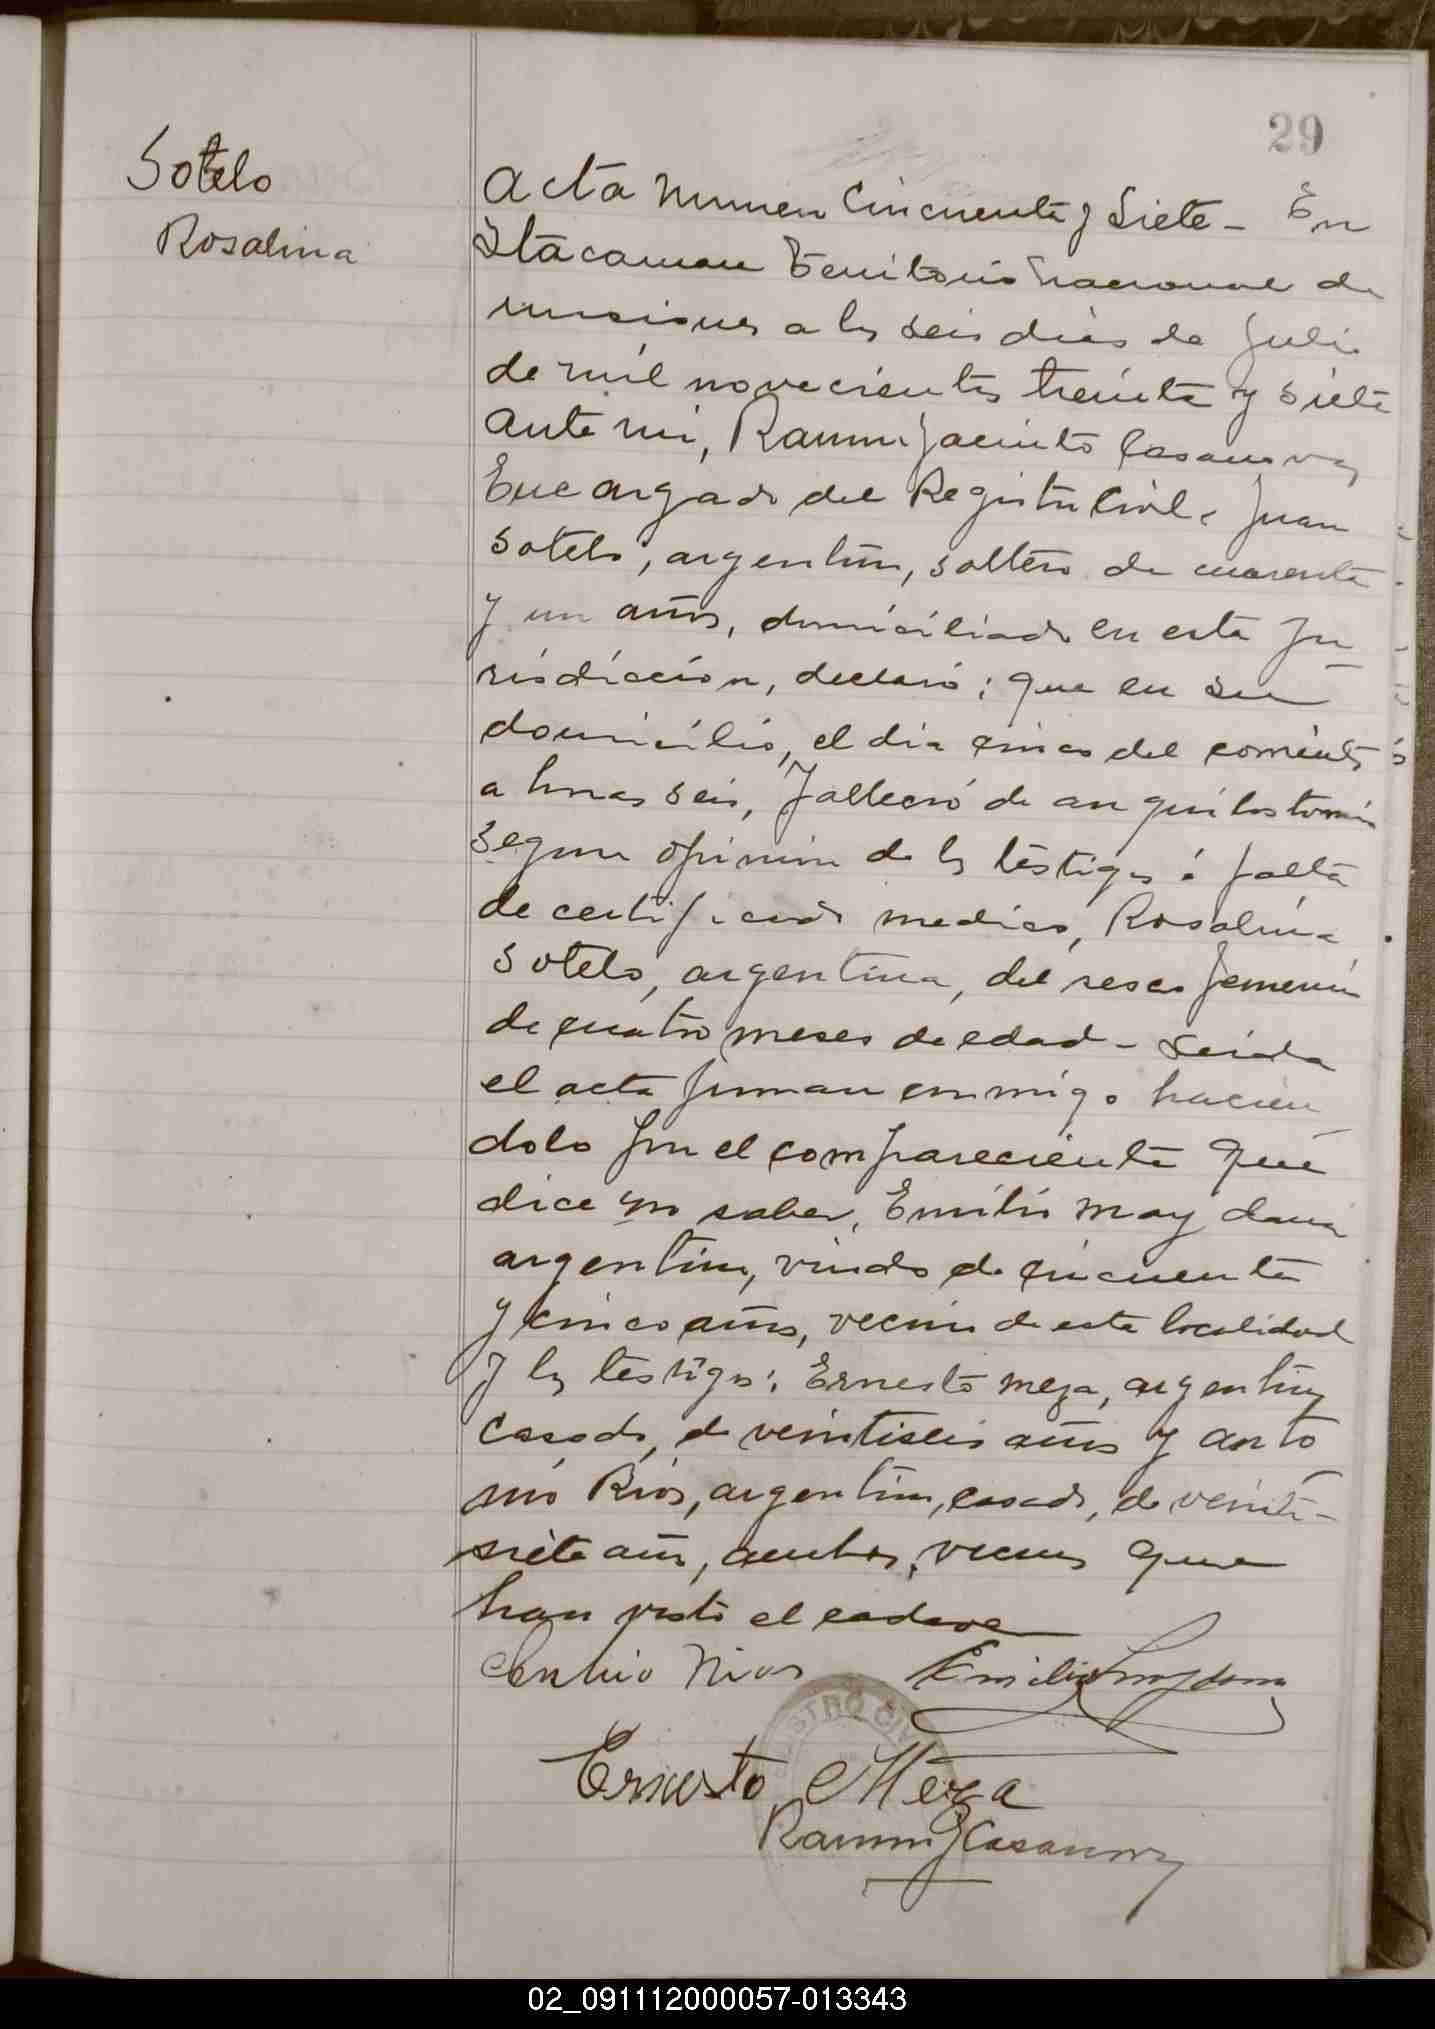 29
Sotelo
Rosalina
Acta numero Cincuenta y Siete - En
Itacaruare Territorio Nacional de
misiones a los seis dias de Julio
de mil novecientos treinta y siete
ante mi, Ramon Jacinto Casanova,
Encargado del Registro Civil, Juan
Sotelo, argentino, soltero de cuarenta
y un años, domiciliado en esta ju
risdiccion, declaró; que en su
domicilio, el dia cinco del corriente
a horas seis, falleció de anquilostomia
segun opinion de los testigos á falta
de certificado medico, Rosalina
Sotelo, argentina, del sexo femenino
de cuatro meses de edad - Leida
el acta firman conmigo hacien
dolo por el compareciente que
dice no saber, Emilio Maydana
argentino, viudo de cincuenta
y cinco años, vecino de esta localidad
y los testigos; Ernesto Meza, argentino
casado, de veintiseis años y Anto
nio Rios, argentino, casado, de veinti-
siete años, ambos, vecinos que
han visto el cadaver
Antonio Rios Emilio Maydana
REGISTRO CIVIL
Ernesto Meza
Ramon J Casanova
02_091112000057-013343